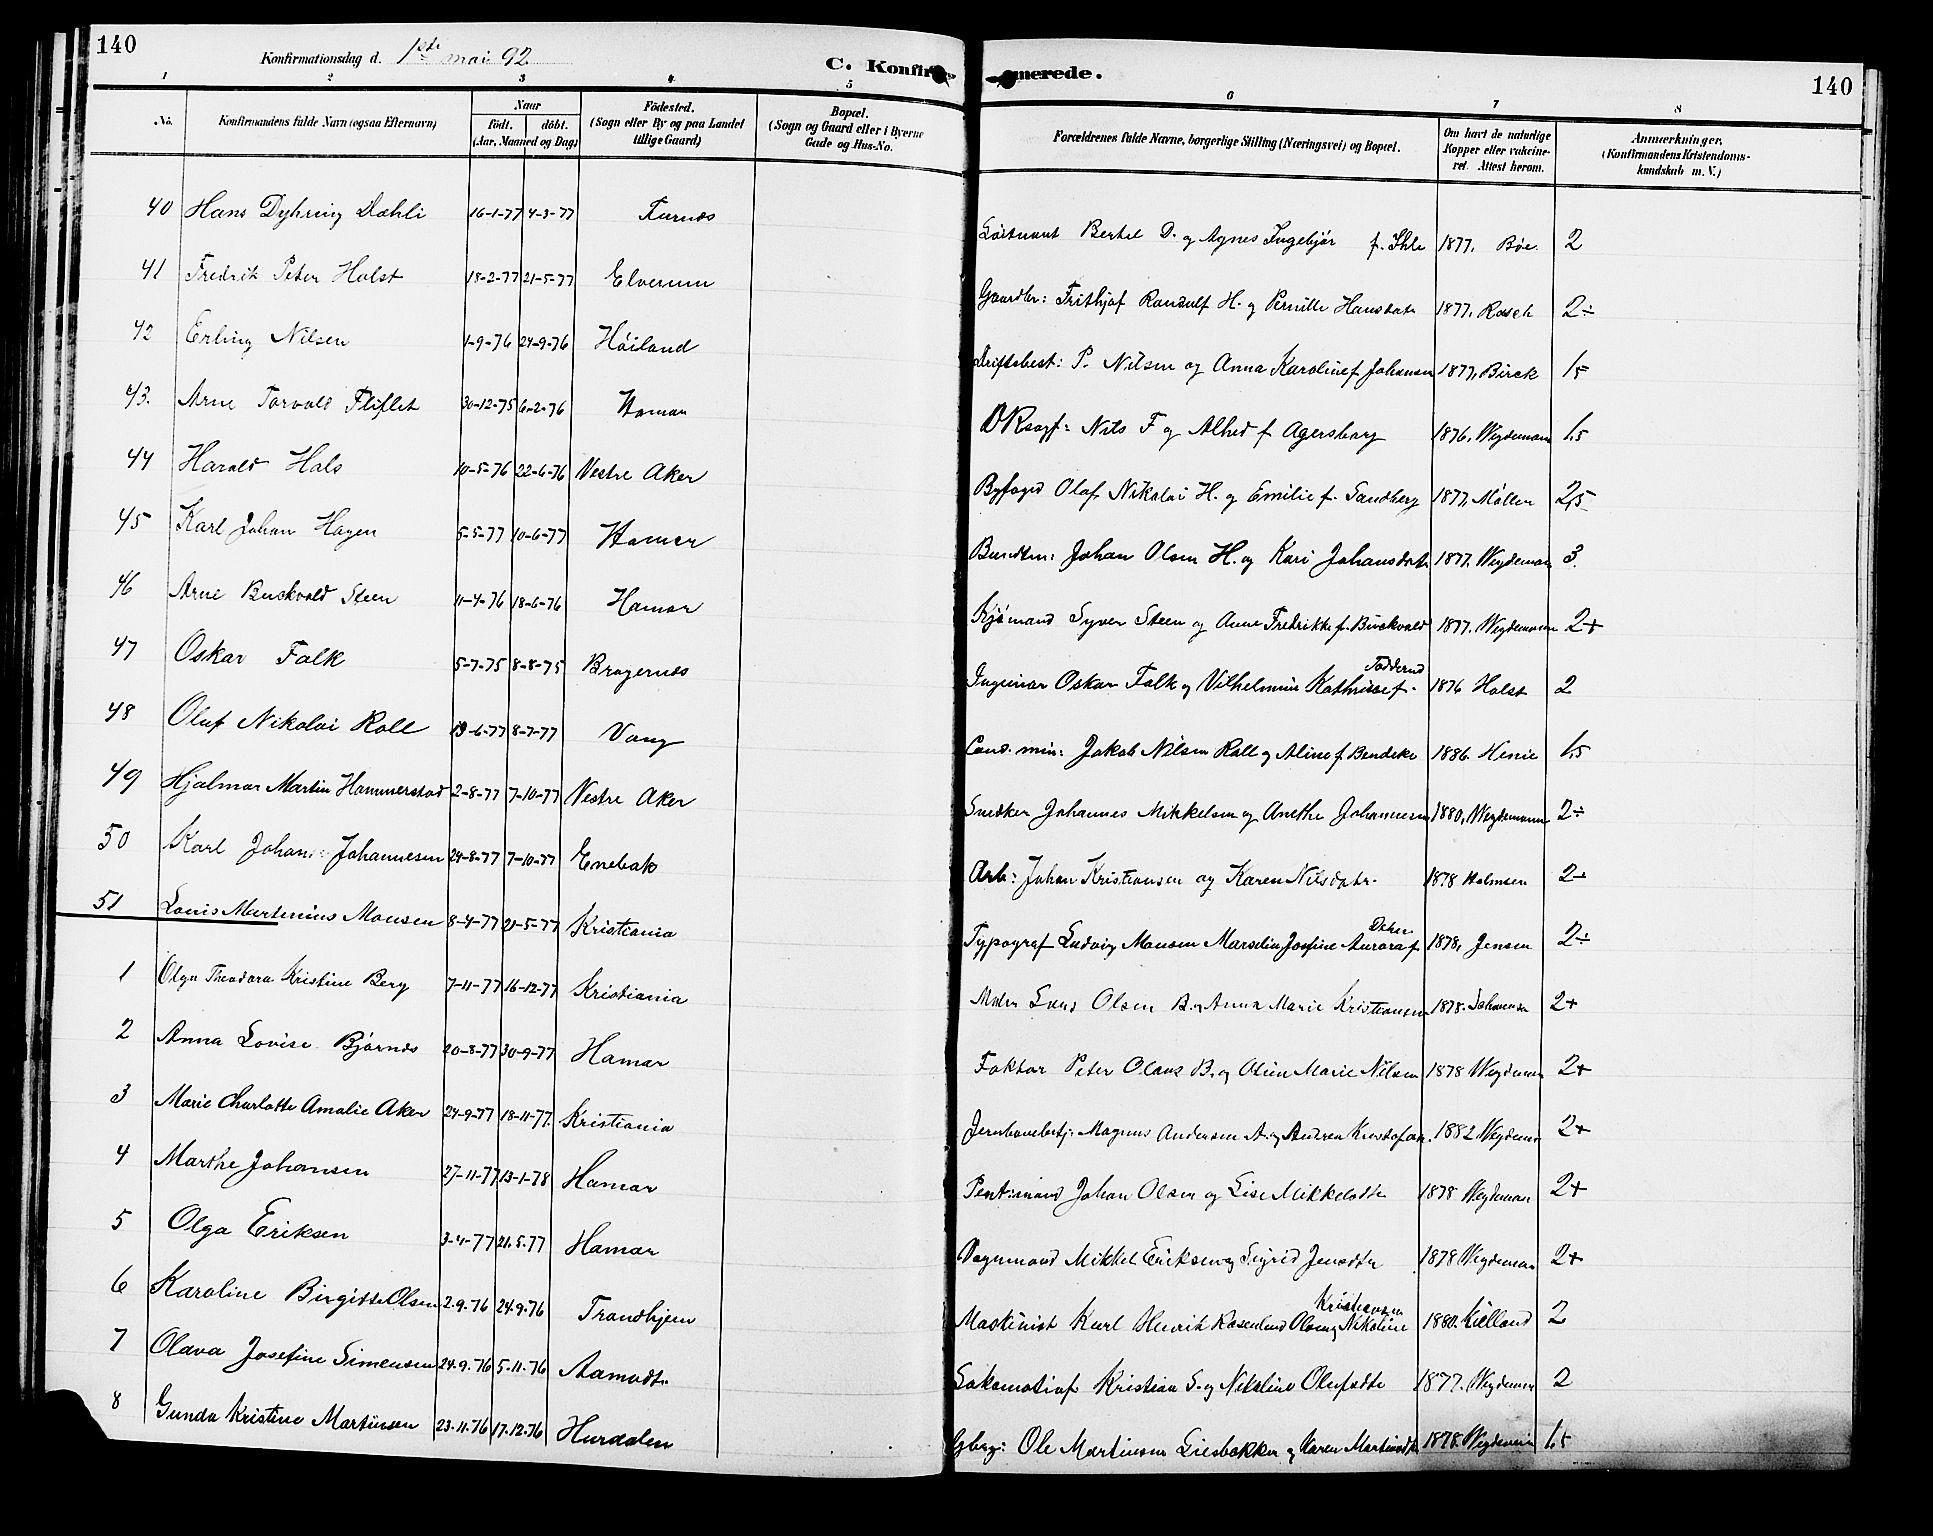 140
Konfirmationsdag d. 1ste mai 92
C. Konfirmerede.
140
1 2 3 4 5 6 7 8
No.
Konfirmandens fulde Navn (ogsaa Efternavn)
Naar
födt. döbt.
(Aar, Maaned og Dag)
Födested.
(Sogn eller By og paa Landet tillige Gaard)
Bopæl.
(Sogn og Gaard eller i Byerne Gade og Hus-No.
Forældrenes fulde Navne, borgerlige Stilling (Næringsvei) og Bopæl.
Om havt de naturlige Kopper eller vakcineret. Attest herom.
Anmærkninger,
(Konfirmandens Kristendomskundskab m. V.)
40 Hans Dyhring Dæhli 16-1-77 4-3-77 Furnes Löitnant Bertel D. og Agnes Ingebjør f. Ihle 1877, Böe 2
41 Fredrik Peter Holst 18-2-77 21-5-77 Elverum Gaardbr: Frithjof Randulf H. og Pernille Hansdatr 1877, Rasch 2÷
42 Erling Nilsen 1-9-76 24-9-76 Höiland Driftsbest: P. Nilsen og Anna Karoline f. Johansen 1877, Birck 1,5
43. Arne Torvald Fliflet 30-12-75 6-2-76 Hamar ORsagf: Nils F og Alhed f Agersborg 1876, Wegdemann 1,5
44 Harald Hals 10-5-76 22-6-76 Vestre Aker Byfoged Olaf Nikolai H. og Emilie f. Sandberg 1877, Møller 2,5
45 Karl Johan Hagen 5-5-77 10-6-77 Hamar Johan Olsen H. og Kari Johansdatr 1877, Wegdeman 3.
46 Arne Buckvold Steen 11-4-76 18-6-76 Hamar Kjömand Syver Steen og Anne Fredrikke f. Buckvold 1877. Wegdemann 2+
47 Oskar Falk 5-7-75 8-8-75 Bragernes Ingeniør Oskar Falk og Vilhelmine Kathrine f. 1876 Holst 2
48 Oluf Nikolai Roll 19-6-77 8-7-77 Vang Cand. min: Jakob Nilsen Roll og Aline f. Bendeke 1886. Henie 1,5
49 Hjalmar Martin Hammerstad 2-8-77 7-10-77 Vestre Aker Snedker Johannes Mikkelsen og Anethe Johannesen 1880, Wegdemann 2÷
50 Karl Johan Johannesen 24-8-77 7-10-77 Enebak Arb: Johan Kristiansen og Karen Nilsdatr. 1878 Holmsen 2÷
51 Louis Martinius Monsen 8-4-77 21-5-77 Kristiania Typograf Ludvig Monsen Marselia Josefine Aurora f 1878, Jensen 2÷
1 Olga Theodora Kristine Berg 7-11-77 16-12-77 Kristiania Olsen B. og Anna Marie Kristiansen 1878. Johannsen 2+
2 Anna Lovise Bjørnes 20-8-77 30-9-77 Hamar Faktor Peter Olaus B. og Oline Marie Nilsen 1878 Wegdeman 2+
3 Marie Charlotte Amalie Aker 24-9-77 18-11-77. Kristiania Jernbanebetj: Magnus Andersen A. og Andrea Kristofersen. 1882 Wegdeman 2+
4 Marthe Johansen 27-11-77 13-1-78 Hamar Johan Olsen og Lise Mikkelsdtr 1878 Wegdeman 2+
5 Olga Eriksen 3-4-77 21.5.77 Hamar Vognmand Mikkel Eriksen og Sigrid Jensdtr 1878 Wegdeman 2+
6 Karoline Birgitte Olsen 2.9.76 24.9.76 Trondhjem Maskinist Karl Henrik Rosenlund Olsen og Nikoline Kristiansen 1880. Kielland 2
7 Olava Josefine Simensen 24.9.76 5.11.76 Aamodt. Lokomotivf Kristian S. og Nikoline Olufsdtr 1877. Wegdeman 2
8 Gunda Kristine Martinsen 23.11.76 17.12.76 Hurdalen Gbrg: Ole Martinsen Liesbakken og Karen Martinsdtr 1878. Wegdeman 1,5